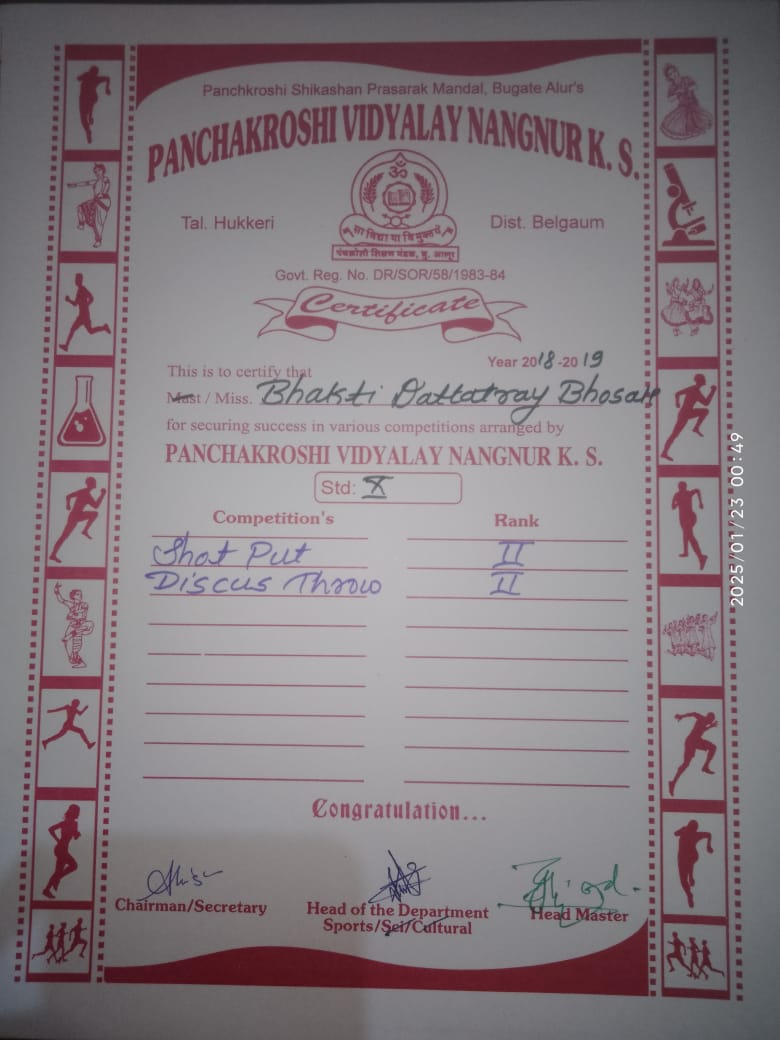 Panchkroshi Shikashan Prasarak Mandal, Bugate Alur's
PANCHAKROSHI VIDYALAY NANGNUR K. S.
ॐ
Tal. Hukkeri
Dist. Belgaum
सा विद्या या विमुक्तये
पंचक्रोशी शिक्षण मंडळ, बु. आलूर
Govt. Reg. No. DR/SOR/58/1983-84
Certificate
Year 2018-2019
This is to certify that
Mast / Miss. Bhakti Dattatray Bhosale
for securing success in various competitions arranged by
PANCHAKROSHI VIDYALAY NANGNUR K. S.
Std: X
Competition's Rank
Shot Put II
Discus Throw II
Congratulation...
Chairman/Secretary
Head of the Department
Sports/Sci/Cultural
Head Master
2025/01/23 00:49